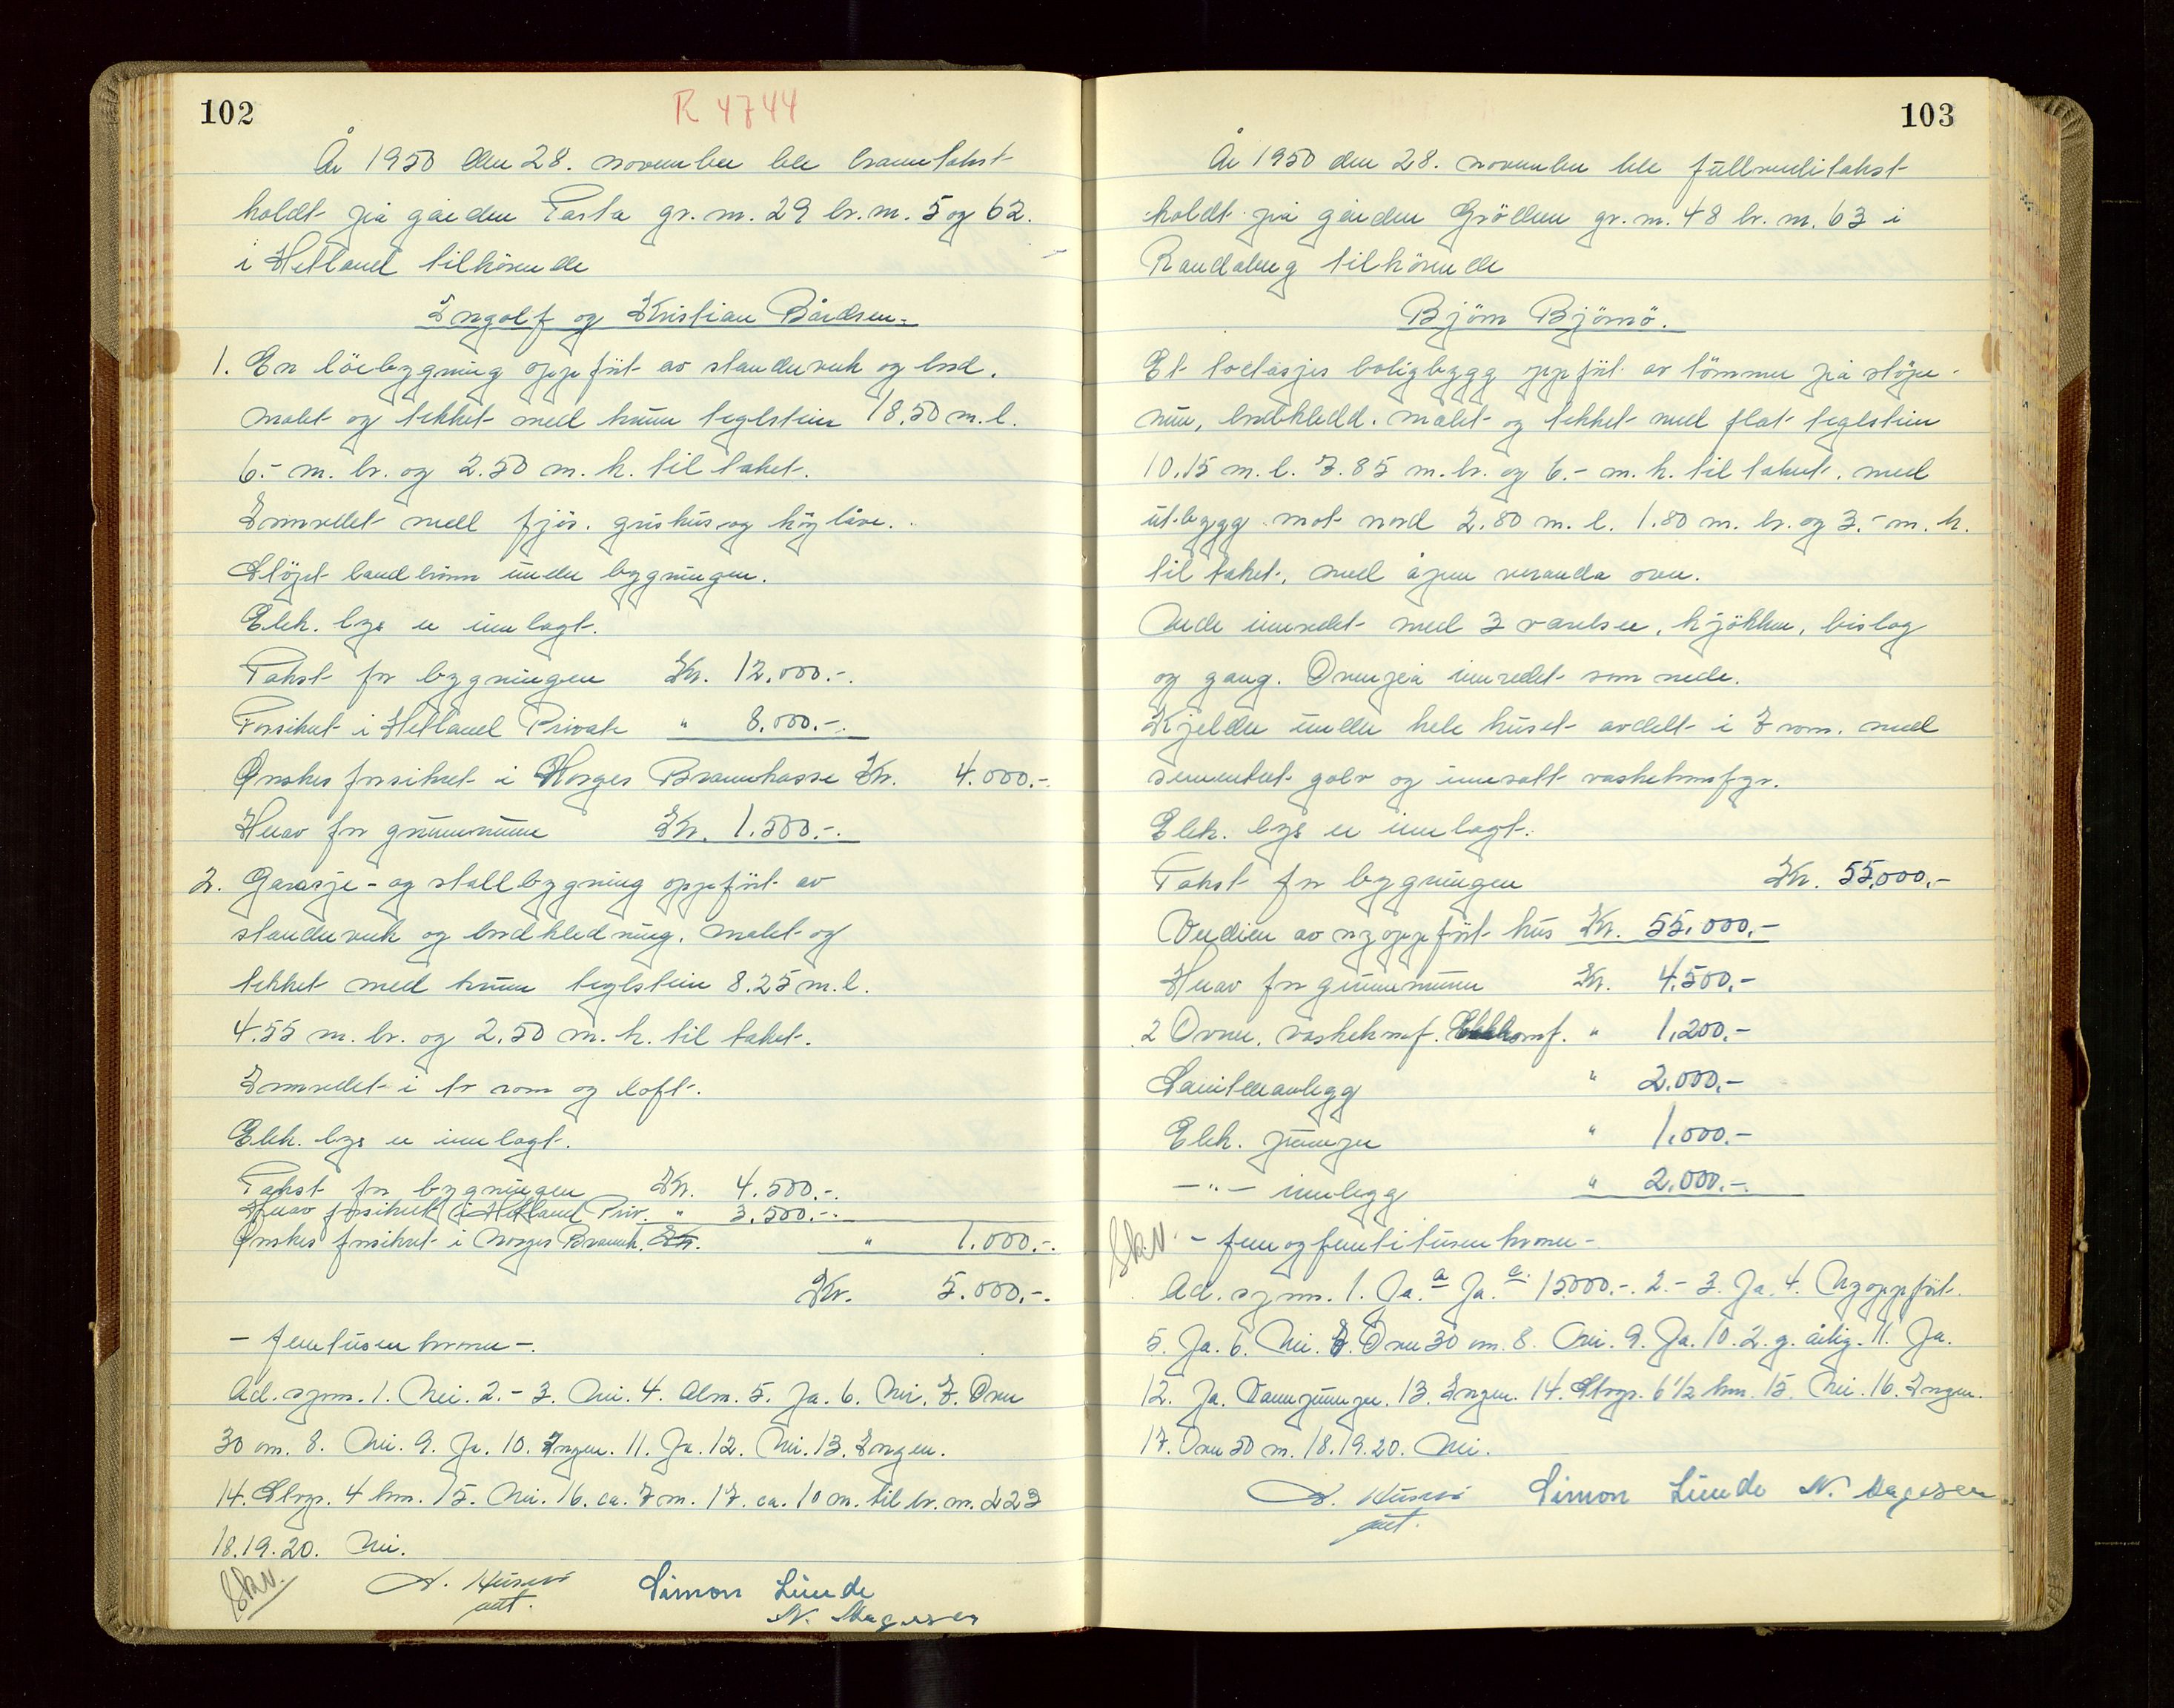 102
R 4744
År 1950 den 28. november ble branntakst
holdt på gården Tasta gr. nr. 29 br. nr. 5 og 62.
i Hetland tilhörende
Ingolf og Kristian Bårdsen.
1. En löebygning oppfört av standerverk og bord.
malet og tekket med krum teglstein 18.50 m. l.
6.- m. br. og 2.50 m. h. til taket.
Innredet med fjös, grishus og höylåve.
Stöpt landbrun under bygningen.
Elek. lys er innlagt.
Takst for bygningen Kr. 12.000.-.
Forsikret i Hetland Private " 8.000.-.
Ønskes forsikret i Norges Brannkasse Kr. 4.000.-.
Herav for grunnmuren Kr. 1.500.-.
2. Garasje- og stallbygning oppfört av
standerverk og bordkledning, malet og
tekket med krum teglstein 8.25 m. l.
4.55 m. br. og 2.50 m. h. til taket.
Innredet i to rom og loft.
Elek. lys er innlagt.
Takst for bygningen Kr. 4.500.-.
Herav forsikret i Hetland Priv. " 3.500.-.
Ønskes forsikret i Norges Brannk. Kr. " 1.000.-.
Kr. 5.000.-.
- femtusen kroner -.
Ad. spm. 1. Nei. 2. - 3. Nei. 4. Alm. 5. Ja. 6. Nei. 7. Over
30 cm. 8. Nei. 9. Ja. 10. Ingen. 11. Ja. 12. Nei. 13. Ingen.
14. Stvgr. 4 km. 15. Nei. 16. ca. 7 m. 17. ca. 10 m. til br. nr. 223
18. 19. 20. Nei.
Skv.
Simon Lunde
N. Aagesen
103
År 1950 den 28. november ble fullverditakst
holdt på gården Grödem gr. nr. 48 br. nr. 63 i
Randaberg tilhörende
Björn Björnö.
Et toetasjes boligbygg oppfört av tömmer på stöpe-
mur, bordkledd, malet og tekket med flat teglstein
10.15 m. l. 7.85 m. br. og 6.- m. h. til taket, med
utbygg mot nord 2.80 m. l. 1.80 m. br. og 3.- m. h.
til taket, med åpen veranda over.
Nede innredet med 3 værelser, kjökken, bislag
og gang. Ovenpå innredet som nede.
Kjeller under hele huset avdelt i 7 rom, med
sementert golv og innsatt vaskekomfyr.
Elek. lys er innlagt.
Takst for bygningen Kr. 55.000.-
Verdien av nyoppfört hus Kr. 55.000.-
Herav for grunnmuren Kr. 4.500.-
2 Ovner, vaskekomf. Elekkomf. " 1.200.-
Sanitæranlegg " 2.000.-
Elek. pumpe " 1.000.-
- " - innlegg " 2.000.-.
Skv. - fem og femti tusen kroner -
Ad. spm. 1. Ja. a Ja. c. 15000.-. 2. - 3. Ja. 4. Nyoppfört.
5. Ja. 6. Nei. 7. Over 30 cm. 8. Nei. 9. Ja. 10. 2. g. årlig. 11. Ja.
12. Ja. Vannpumpe. 13. Ingen. 14. Stvgr. 6 1/2 km. 15. Nei. 16. Ingen.
17. Over 50 m. 18. 19. 20. Nei.
Simon Lunde N. Aagesen